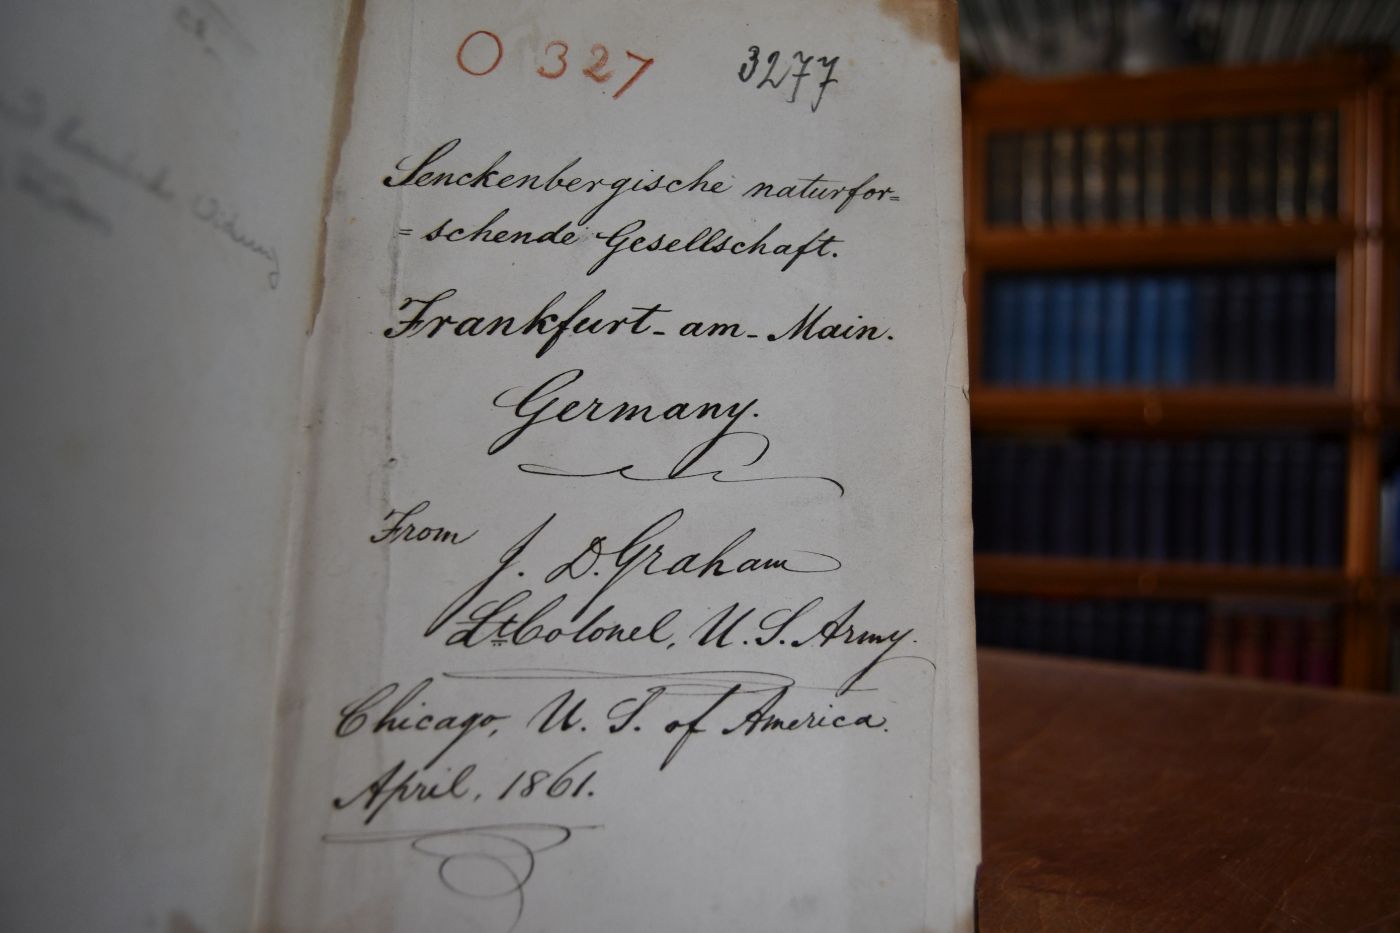 O 327 3277
Senckenbergische naturfor=
=schende Gesellschaft.
Frankfurt-am-Main.
Germany.
From J. D. Graham
Lt Colonel, U. S. Army.
Chicago, U. S. of America.
April, 1861.